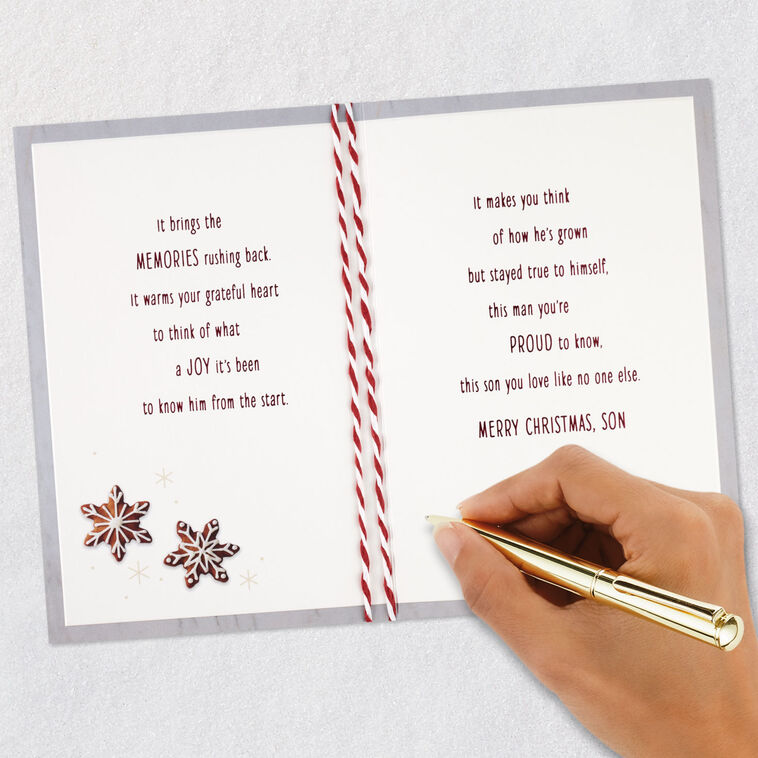 It brings the
MEMORIES rushing back.
It warms your grateful heart
to think of what
a JOY it's been
to know him from the start.
It makes you think
of how he's grown
but stayed true to himself,
this man you're
PROUD to know,
this son you love like no one else.
MERRY CHRISTMAS, SON